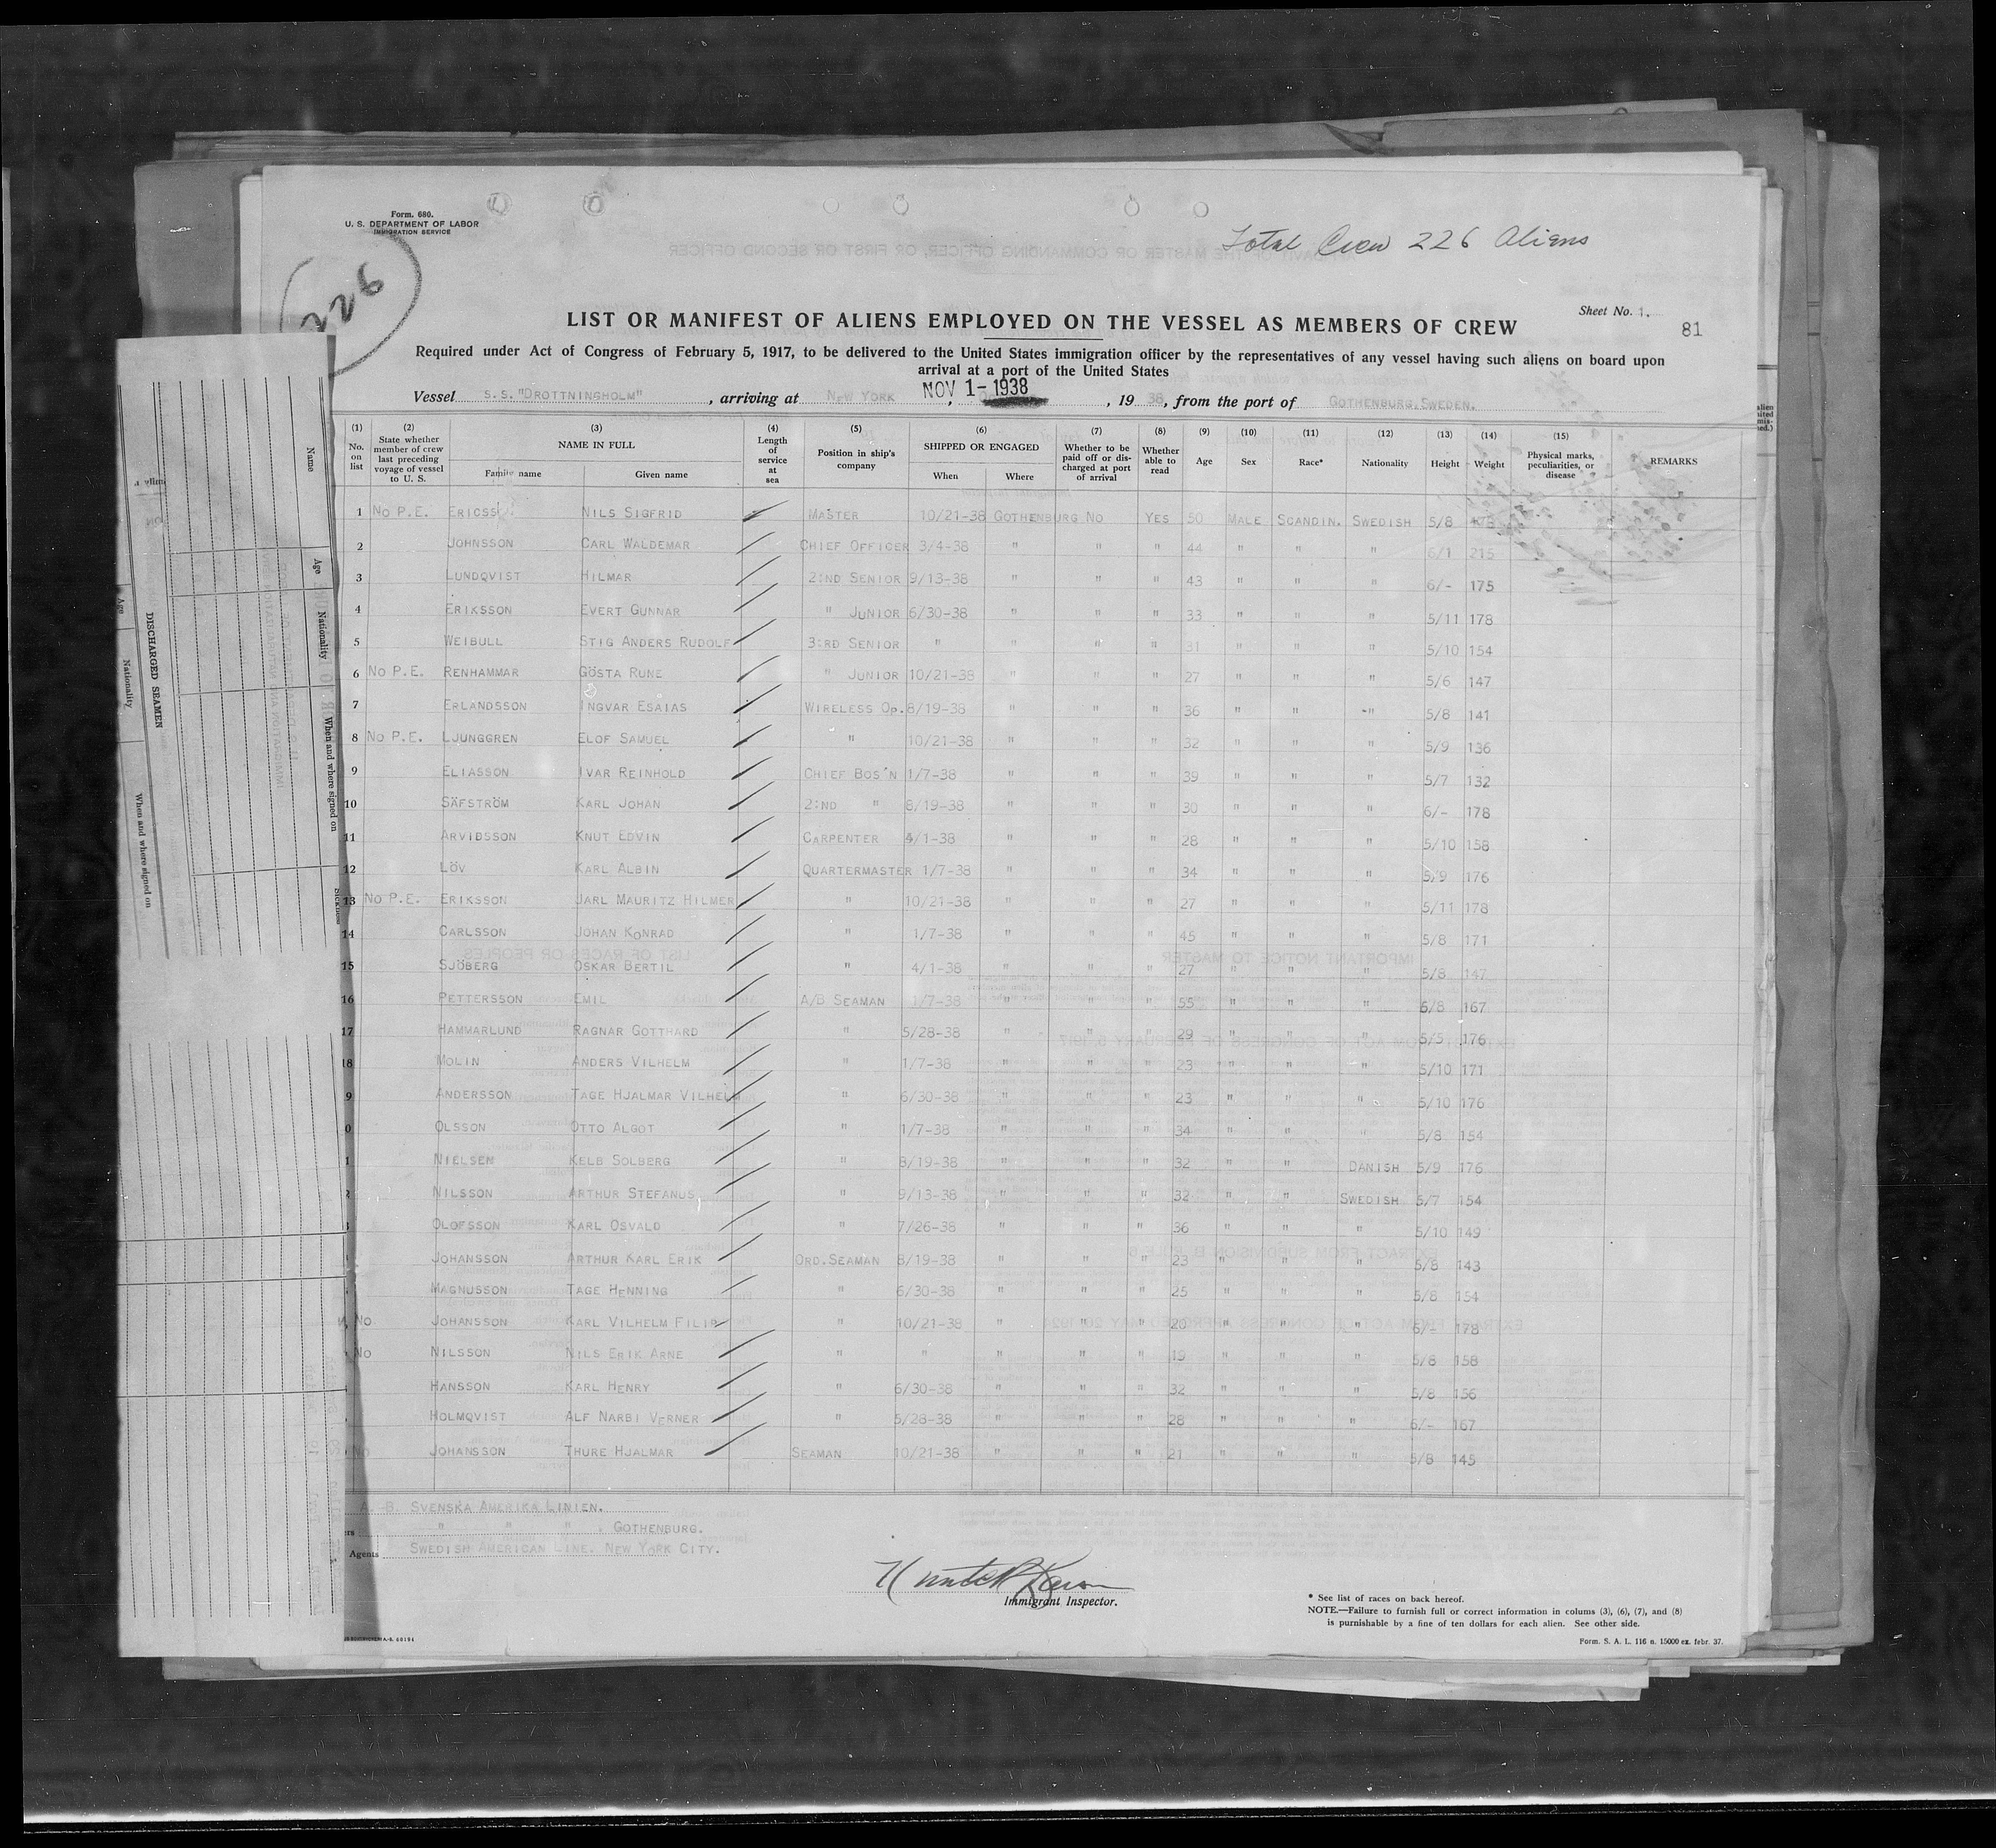 Form. 680.
U. S. DEPARTMENT OF LABOR
IMMIGRATION SERVICE
226
Total Crew 226 Aliens
Sheet No. 1.
81
LIST OR MANIFEST OF ALIENS EMPLOYED ON THE VESSEL AS MEMBERS OF CREW
Required under Act of Congress of February 5, 1917, to be delivered to the United States immigration officer by the representatives of any vessel having such aliens on board upon
arrival at a port of the United States
Vessel S.S. "DROTTNINGHOLM", arriving at NEW YORK NOV 1-1938, 1938, from the port of GOTHENBURG, SWEDEN.
(1) No. on list (2) State whether member of crew last preceding voyage of vessel to U. S. (3) NAME IN FULL Family name Given name (4) Length of service at sea (5) Position in ship's company (6) SHIPPED OR ENGAGED When Where (7) Whether to be paid off or discharged at port of arrival (8) Whether able to read (9) Age (10) Sex (11) Race* (12) Nationality (13) Height (14) Weight (15) Physical marks, peculiarities, or disease REMARKS
1 NO P.E. ERICSSON NILS SIGFRID MASTER 10/21-38 GOTHENBURG NO YES 50 MALE SCANDIN. SWEDISH 5/8
2 JOHNSSON CARL WALDEMAR CHIEF OFFICER 3/4-38 " " " 44 " " " 6/1 215
3 LUNDQVIST HILMAR 2:ND SENIOR 9/13-38 " " " 43 " " " 6/- 175
4 ERIKSSON EVERT GUNNAR " JUNIOR 6/30-38 " " " 33 " " " 5/11 178
5 WEIBULL STIG ANDERS RUDOLF 3:RD SENIOR " " " " 31 " " " 5/10 154
6 NO P.E. RENHAMMAR GÖSTA RUNE " JUNIOR 10/21-38 " " " 27 " " " 5/6 147
7 ERLANDSSON INGVAR ESAIAS WIRELESS OP. 8/19-38 " " " 36 " " " 5/8 141
8 NO P.E. LJUNGGREN ELOF SAMUEL " 10/21-38 " " " 32 " " " 5/9 136
9 ELIASSON IVAR REINHOLD CHIEF BOS'N 1/7-38 " " " 39 " " " 5/7 132
10 SÄFSTRÖM KARL JOHAN 2:ND " 8/19-38 " " " 30 " " " 6/- 178
11 ARVIDSSON KNUT EDVIN CARPENTER 4/1-38 " " " 28 " " " 5/10 158
12 LÖV KARL ALBIN QUARTERMASTER 1/7-38 " " " 34 " " " 5/9 176
13 NO P.E. ERIKSSON JARL MAURITZ HILMER " 10/21-38 " " " 27 " " " 5/11 178
14 CARLSSON JOHAN KONRAD " 1/7-38 " " " 45 " " " 5/8 171
15 SJÖBERG OSKAR BERTIL " 4/1-38 " " " 27 " " " 5/8 147
16 PETTERSSON EMIL A/B SEAMAN 1/7-38 " " " 55 " " " 5/8 167
17 HAMMARLUND RAGNAR GOTTHARD " 5/28-38 " " " 29 " " " 5/5 176
18 MOLIN ANDERS VILHELM " 1/7-38 " " " 23 " " " 5/10 171
9 ANDERSSON TAGE HJALMAR VILHELM " 6/30-38 " " " 23 " " " 5/10 176
0 OLSSON OTTO ALGOT " 1/7-38 " " " 34 " " " 5/8 154
1 NIELSEN KELB SOLBERG " 8/19-38 " " " 32 " " DANISH 5/9 176
2 NILSSON ARTHUR STEFANUS " 9/13-38 " " " 32 " " SWEDISH 5/7 154
OLOFSSON KARL OSVALD " 7/26-38 " " " 36 " " " 5/10 149
JOHANSSON ARTHUR KARL ERIK ORD.SEAMAN 8/19-38 " " " 23 " " " 5/8 143
MAGNUSSON TAGE HENNING " 6/30-38 " " " 25 " " " 5/8 154
NO JOHANSSON KARL VILHELM FILIP " 10/21-38 " " " 20 " " " 6/- 178
NO NILSSON NILS ERIK ARNE " " " " " 19 " " " 5/8 158
HANSSON KARL HENRY " 6/30-38 " " " 32 " " " 5/8 156
HOLMQVIST ALF NARBI VERNER " 5/28-38 " " " 28 " " " 6/- 167
NO JOHANSSON THURE HJALMAR SEAMAN 10/21-38 " " " 21 " " " 5/8 145
A.-B. SVENSKA AMERIKA LINIEN.
" " " . GOTHENBURG.
Agents SWEDISH AMERICAN LINE. NEW YORK CITY.
Immigrant Inspector.
* See list of races on back hereof.
NOTE.—Failure to furnish full or correct information in colums (3), (6), (7), and (8)
is punishable by a fine of ten dollars for each alien. See other side.
Form. S. A. L. 116 n. 15000 ex. febr. 37.
Name
Age
Nationality
When and where signed on
DISCHARGED SEAMEN
Age
Nationality
When and where signed on